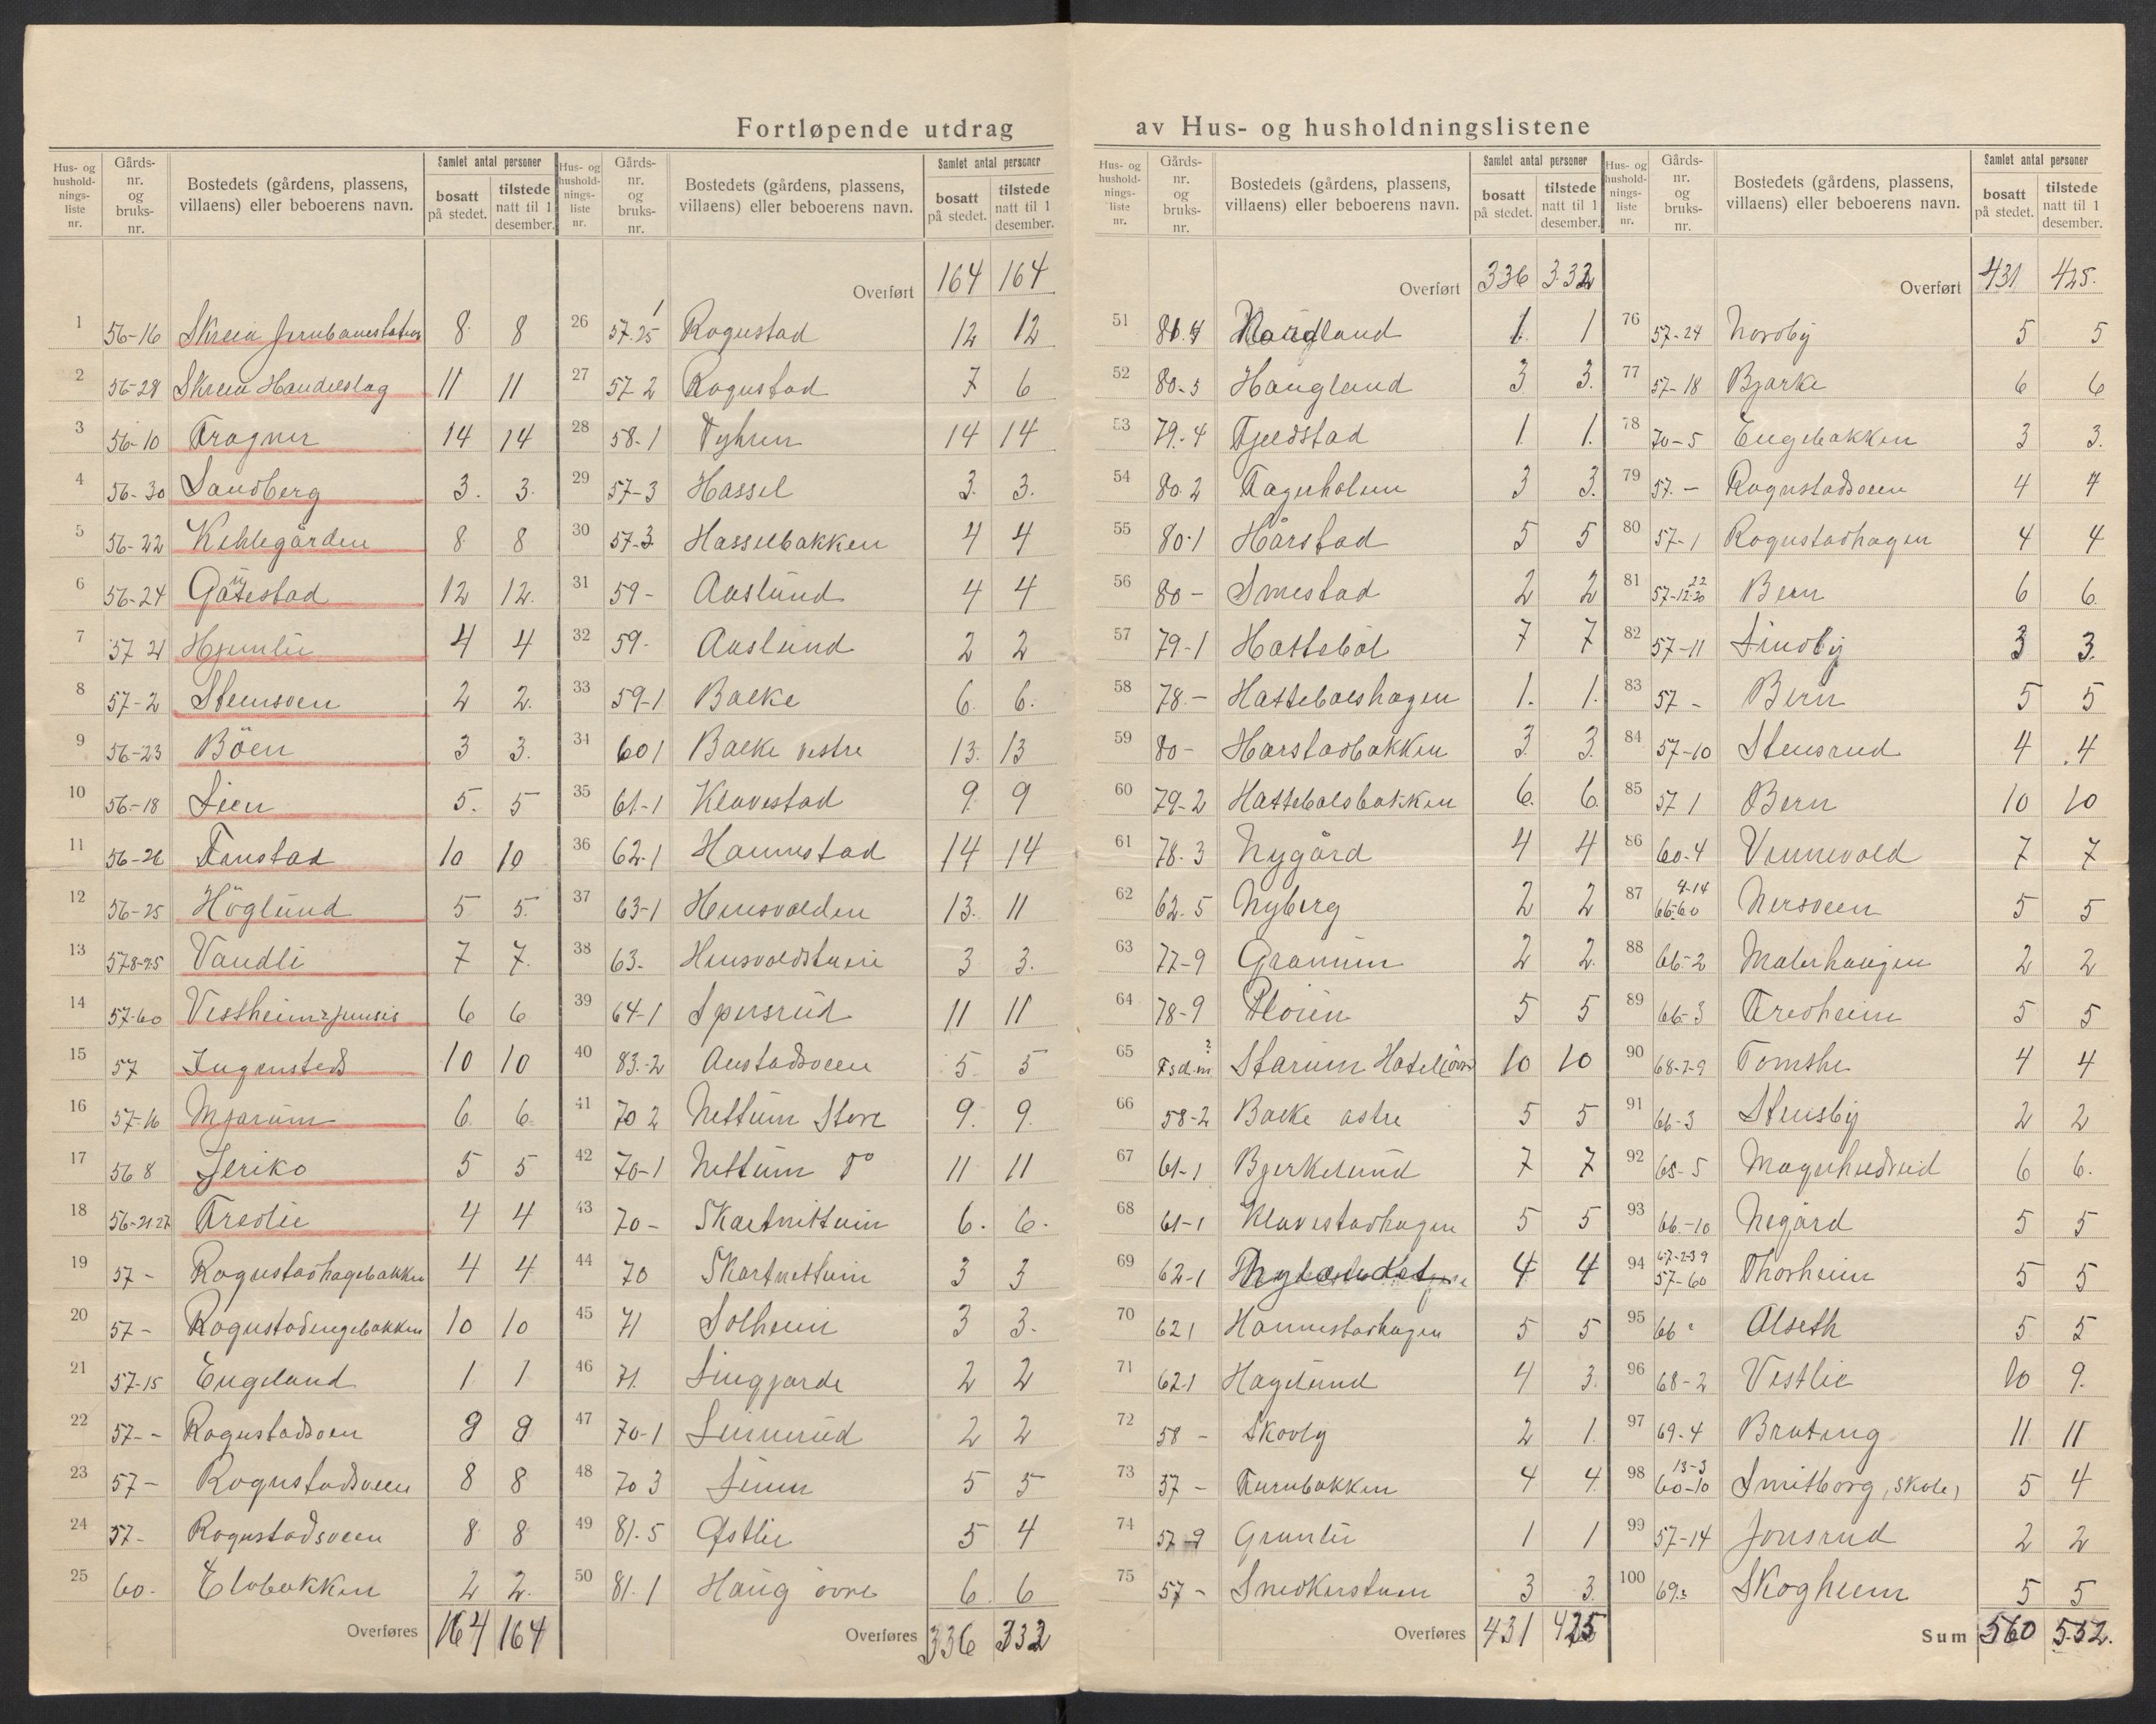 Fortløpende utdrag av Hus- og husholdningslistene
Hus- og husholdningsliste nr. | Gårds-nr. og bruks-nr. | Bostedets (gårdens, plassens, villaens) eller beboerens navn. | Samlet antal personer | bosatt på stedet. | tilstede natt til 1 desember.
1 56-16 Skreia Jernbanestation 8 8
2 56-28 Skreia Handelslag 11 11
3 56-10 Fragner 14 14
4 56-30 Sandberg 3. 3.
5 56-22 Kihlegården 8 8
6 56-24 12 12.
7 57 21 4 4
8 57-2 Stensveen 2 2.
9 56-23 Böen 3 3.
10 56-18 Lien 5. 5
11 56-26 10 10
12 56-25 Höglund 5 5.
13 578-25 Vandli 7 7.
14 57-60 Vestheim 6 6
15 57 Ingensteds 10 10
16 57-16 Mjørum 6 6
17 56 8 Jeriko 5 5
18 56-21 27 Fredlie 4 4
19 57- Rognstadhagebakken 4 4
20 57- Rognstadengebakken 10 10
21 57-15 Engeland 1 1
22 57-- Rognstadveen
23 57- Rognstadsveen 8 8
24 57- Rognstadsveen 8 8
25 60- Elvbakken 2 2.
Overføres 164 164
Hus- og husholdningsliste nr. | Gårds-nr. og bruks-nr. | Bostedets (gårdens, plassens, villaens) eller beboerens navn. | Samlet antal personer | bosatt på stedet. | tilstede natt til 1 desember.
Overført 164 164
26 57-25 1 Rognstad 12 12
27 57 2 Rognstad 7 6
28 58-1 14 14
29 57-3 Hassel 3. 3.
30 57-3 Hasselbakken 4 4
31 59- Aaslund 4 4
32 59- Aaslund 2 2
33 59-1 Balke 6. 6.
34 601 Balke vestre 13. 13
35 61-1 Klavestad 9. 9
36 62-1 Hannestad 14 14
37 63-1 Hensvolden 13. 11
38 63- 3 3.
39 64-1 Spersrud 11 11
40 83.-2 5 5
41 70 2 Nettum Store 9. 9.
42 70-1 Nettum do 11 11
43 70- Skartnittum 6. 6.
44 70 Skartnettum 3 3
45 71 Solheim 3 3.
46 71. Lingjarde 2 2
47 70-1 Linnerud 2 2
48 70 3 Linn 5 5
49 81.5 Østlie 5 4
50 81.1 Haug övre 6. 6
Overføres 336 332
Hus- og husholdningsliste nr. | Gårds-nr. og bruks-nr. | Bostedets (gårdens, plassens, villaens) eller beboerens navn. | Samlet antal personer | bosatt på stedet. | tilstede natt til 1 desember.
Overført 336 332
51 1. 1
52 80-3 Haugland 3 3.
53 79.-4 Fjeldstad 1. 1.
54 80.2 Fagerholm 3 3.
55 80-1 Hårstad 5 5
56 80- Smestad 2 2
57 79-1 Hattebøl 7 7
58 78.- Hattebølshagen 1. 1.
59 80- Harstadbakken 3. 3.
60 79-2 Hattebølsbakken 6. 6.
61 78.3 Nygård 4 4
62 62.5 Nyberg 2 2
63 77-9 Granum 2 2.
64 78-9 5 5
65 Starum Hotel 10 10
66 58-2 Balke østre 5 5
67 61-1 Bjerkelund 7 7
68 61-1 Klavestadhagen 5 5
69 62-1 4 4
70 621 Hannestadhagen 5 5
71 62.1 Hagelund 4 3.
72 58 - Skovly 2 1.
73 57 - Furubakken 4 4.
74 57-9 Granlie 1 1
75 57- Snedkerstuen 3 3.
Overføres 431 425
Hus- og husholdningsliste nr. | Gårds-nr. og bruks-nr. | Bostedets (gårdens, plassens, villaens) eller beboerens navn. | Samlet antal personer | bosatt på stedet. | tilstede natt til 1 desember.
Overført 431 425.
76 57-24 Nordby 5 5
77 57-18 Bjørke 6 6
78 70-5 Engebakken 3 3.
79 57.- Rognstadsveen 4 4
80 57-1 Rognstadhagen 4 4
81 57-12.20 22 Bern 6 6.
82 57-11 Lindby 3 3.
83 57 - Bern 5 5
84 57-10 Stensrud 4 4
85 57 1 Bern 10 10
86 60-4 Vennevold 7 7
87 4-14 66-60 Nersveen 5 5
88 66-2 Malerhaugen 2 2
89 66-3 Fredheim 5 5
90 68-7-9 4 4
91 66-3 Stensby 2 2
92 65-5 6 6.
93 66.-10 Negård 5 5
94 67-2-39 57-60 Thorheim 5 5
95 66 Alseth 5 5
96 68-2 Vestlie 10 9.
97 69-4 11 11
98 13-3 60-10 Smitborg, skole) 5 4
99 57-14 Jonsrud 2 2
100 69 Skogheim 5 5
Sum 560 552.